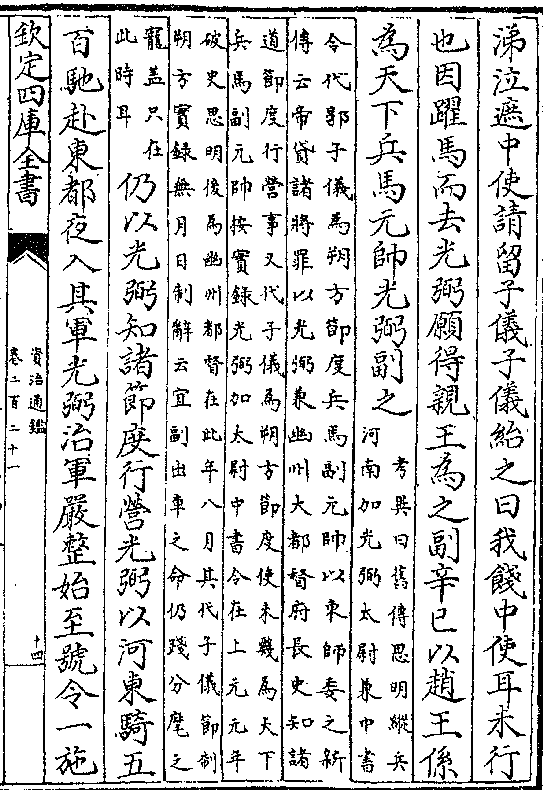 涕泣遮中使請留子儀子儀紿之曰我餞中使耳未行
也因躍馬而去光弼願得親王為之副辛巳以趙王係
為天下兵馬元帥光弼副之
考異曰舊傳思明縱兵
河南加光弼太尉兼中書
令代郭子儀為朔方節度兵馬副元帥以東師委之新
傳云帝貸諸將罪以光弼兼幽州大都督府長史知諸
道節度行營事又代子儀為朔方節度使未幾為天下
兵馬副元帥按實録光弼加太尉中書令在上元元年
破史思明後為幽州都督在此年八月其代子儀節制
朔方實録無月日制解云宜副出車之命仍踐分麾之
寵盖只在
此時耳
仍以光弼知諸節度行營光弼以河東騎五
百馳赴東都夜入其軍光弼治軍嚴整始至號令一施
欽定四庫全書
資治通鑑
卷二百二十一
十四